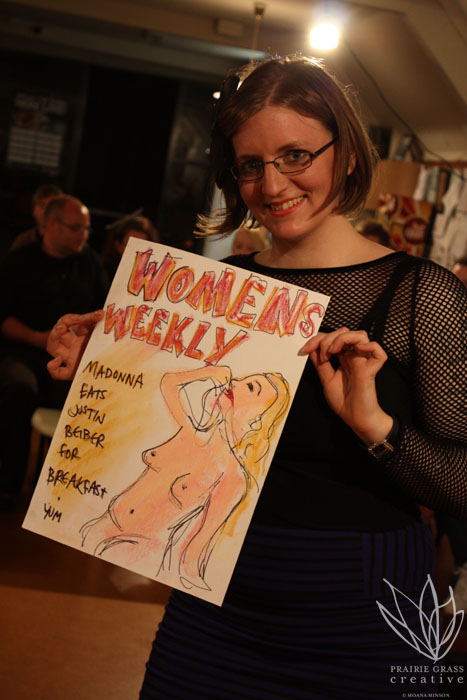 WOMENS
WEEKLY
MADONNA
EATS
JUSTIN
BEIBER
FOR
BREAKFAST
. YUM
PRAIRIE GRASS
creative
© MOANA MINSON